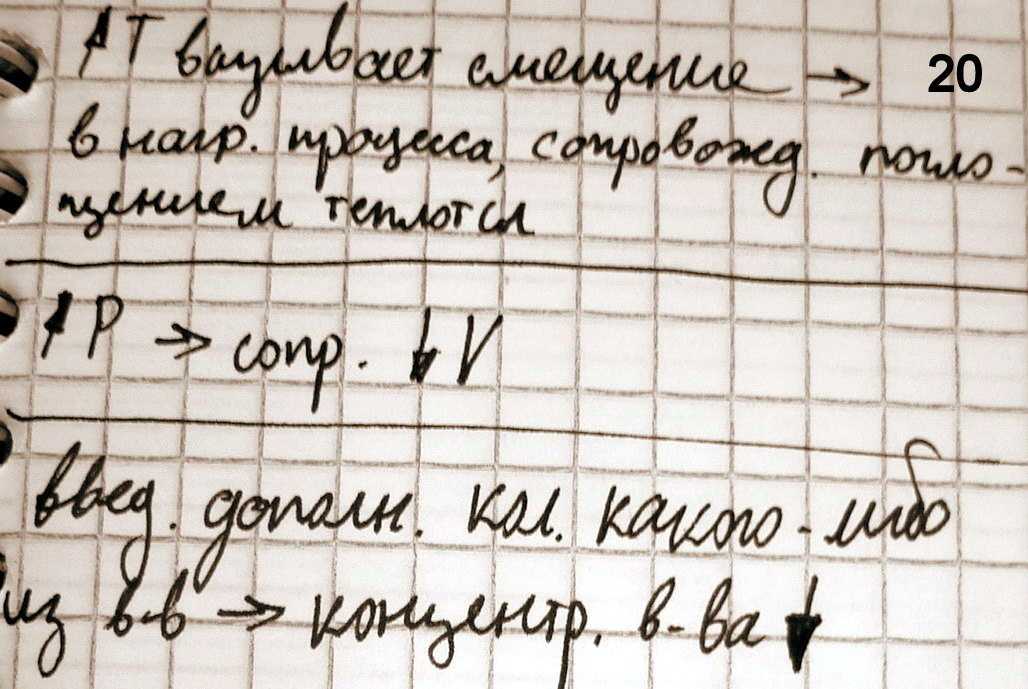 ↑T вызывает смещение → 20
в напр. процесса, сопровожд. погло-
щением теплоты
↑P → сопр. ↓V
введ. дополн. кол. какого-либо
из в-в → концентр. в-ва ↓